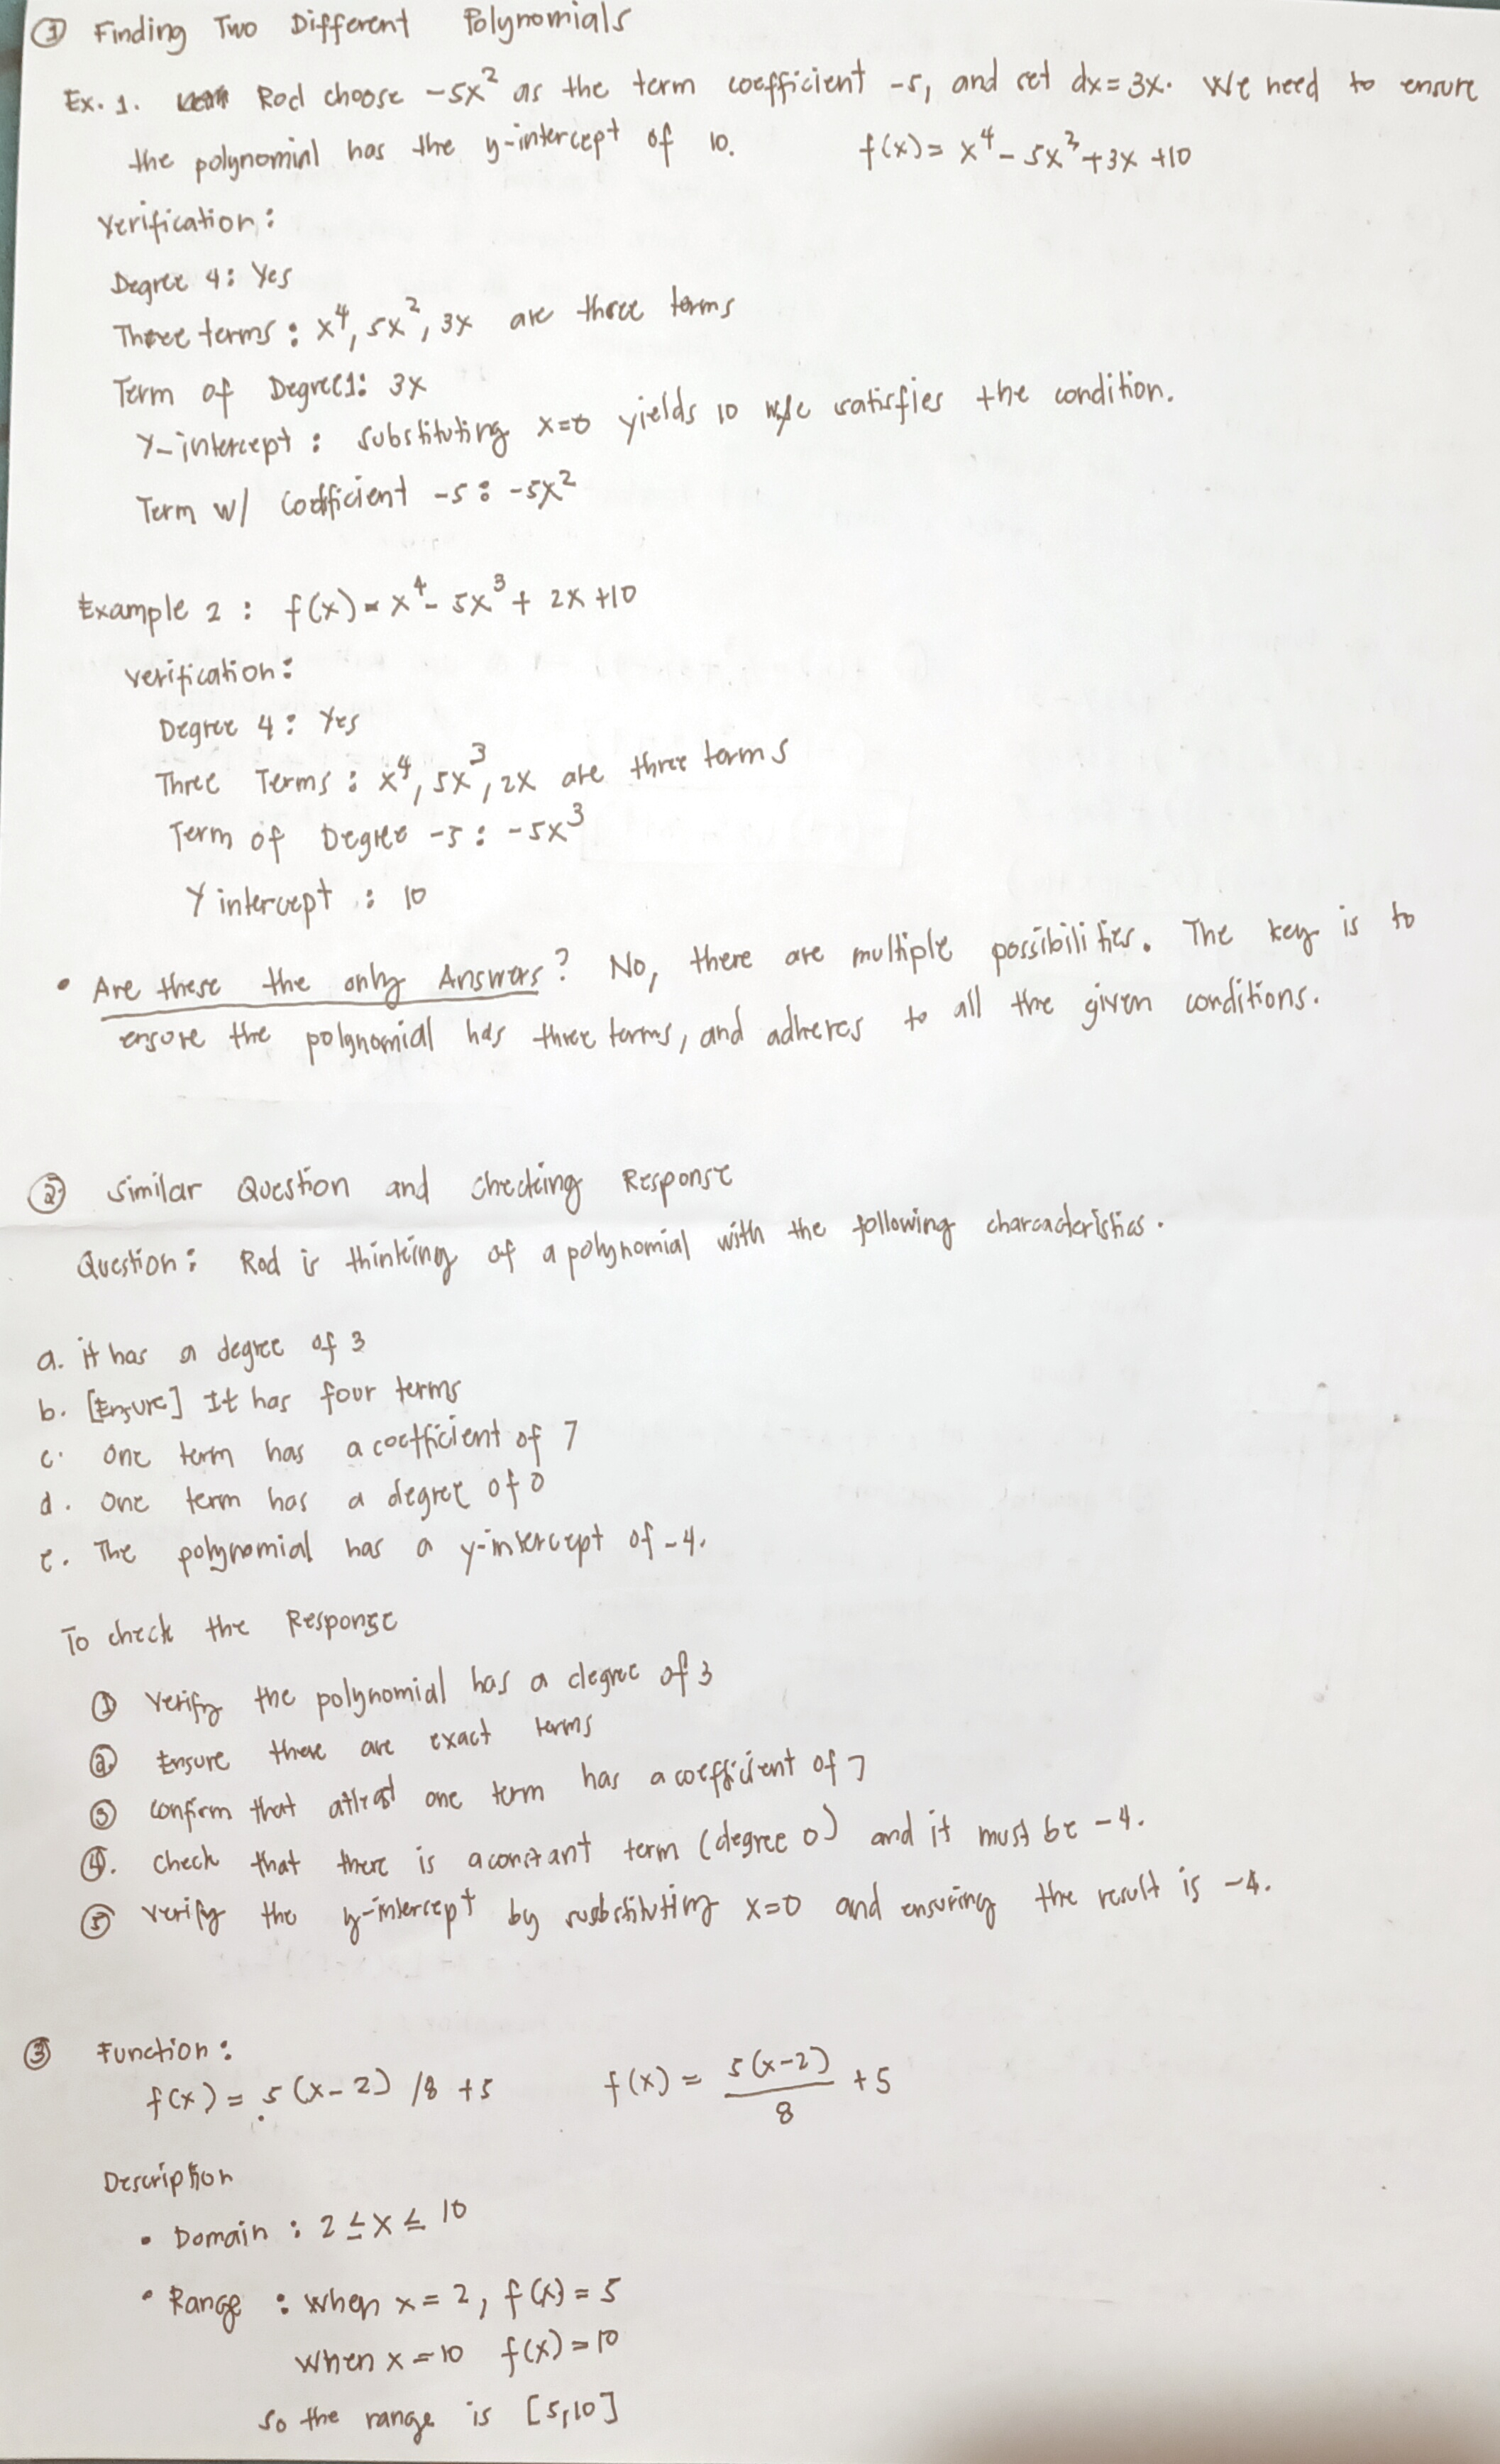 ① Finding Two Different Polynomials
Ex. 1. Rod choose -5x² as the term coefficient -5, and set dx = 3x. We need to ensure
the polynomial has the y-intercept of 10. f(x) = x⁴ - 5x² + 3x + 10
Verification:
Degree 4: Yes
Three terms: x⁴, 5x², 3x are three terms
Term of Degree 1: 3x
Y-intercept: substituting x=0 yields 10 satisfies the condition.
Term w/ Coefficient -5: -5x²
Example 2: f(x) = x⁴ - 5x³ + 2x + 10
Verification:
Degree 4: Yes
Three Terms: x⁴, 5x³, 2x are three terms
Term of Degree -5: -5x³
Y intercept: 10
• Are these the only Answers? No, there are multiple possibilities. The key is to
ensure the polynomial has three terms, and adheres to all the given conditions.
② Similar Question and Checking Response
Question: Rod is thinking of a polynomial with the following characteristics.
a. it has a degree of 3
b. [Ensure] It has four terms
c. One term has a coefficient of 7
d. One term has a degree of 0
e. The polynomial has a y-intercept of -4.
To check the Response
① Verify the polynomial has a degree of 3
② Ensure there are exact terms
③ Confirm that atleast one term has a coefficient of 7
④. Check that there is a constant term (degree 0) and it must be -4.
⑤ Verify the y-intercept by susbstituting x=0 and ensuring the result is -4.
③ Function:
f(x) = 5(x-2) /8 +5 f(x) = 5(x-2)/8 + 5
Description
• Domain: 2 ≤ x ≤ 10
• Range: When x = 2, f(x) = 5
When x = 10 f(x) = 10
So the range is [5,10]